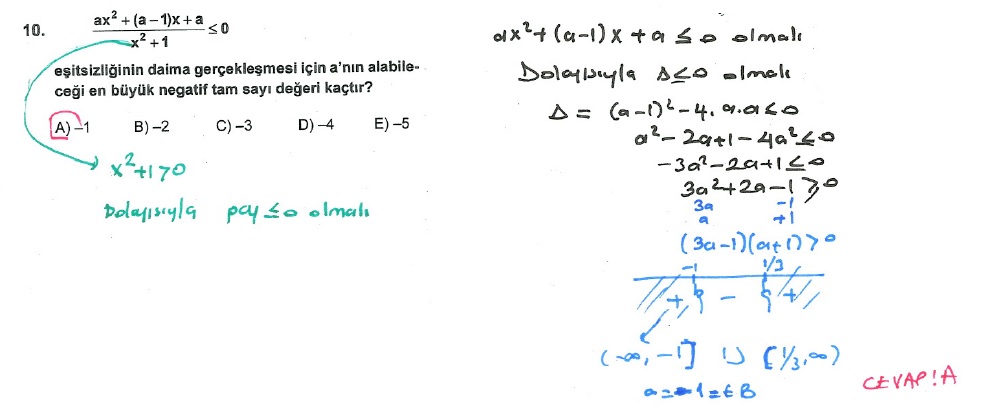 10. ax² + (a – 1)x + a / x² + 1 ≤ 0
eşitsizliğinin daima gerçekleşmesi için a'nın alabile-
ceği en büyük negatif tam sayı değeri kaçtır?
A) –1 B) –2 C) –3 D) –4 E) –5
x²+1>0
Dolayısıyla pay ≤0 olmalı
ax²+(a-1)x+a ≤ 0 olmalı
Dolayısıyla Δ≤0 olmalı
Δ = (a-1)²-4.a.a≤0
a²-2a+1-4a²≤0
-3a²-2a+1≤0
3a²+2a-1≥0
3a -1
a +1
(3a-1)(a+1)≥0
-1 1/3
+ - +
(-∞,-1] ∪ [1/3,∞)
CEVAP!A